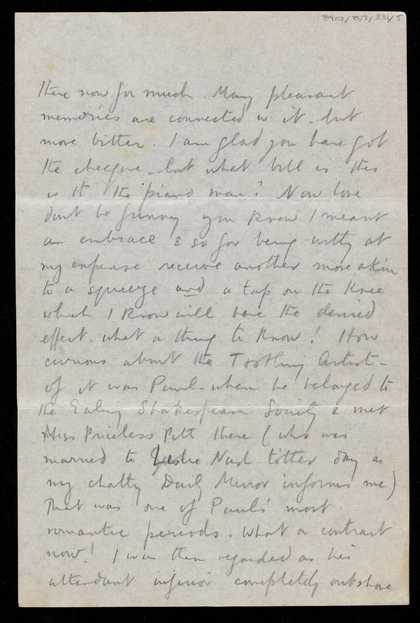 8917/10/2/334/5
there now for much. Many pleasant
memories are connected w it - but
more bitter. I am glad you have got
the cheque - but what bill is this
is it the 'piano man'? Now love
don't be funny you know I meant
an embrace & so for being witty at
my expense receive another more akin
to a squeeze and a tap on the knee
which I know will have the desired
effect - what a thing to know! How
curious about the Toothing Artist -
of it was Paul - when he belonged to
the Ealing Shakespeare Society & met
Miss Priceless Pitt there (who was
married to Leslie Nash tother day as
my chatty Daily Mirror informs me)
That was one of Paul's most
romantic periods. What a contrast
now! I was then regarded as his
attendant inferior completely outshone